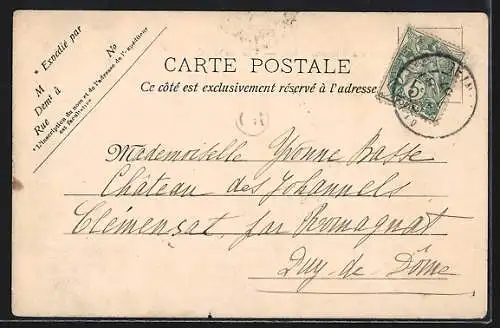 * Expédié par
M
Demt à
Rue
No
* L'inscription du nom et de l'adresse de l'expéditeur
est facultative.
CARTE POSTALE
Ce côté est exclusivement réservé à l'adresse
Mademoiselle Yvonne Basse
Château des Johannels
Clémensat, par Romagnat
Puy-de-Dôme